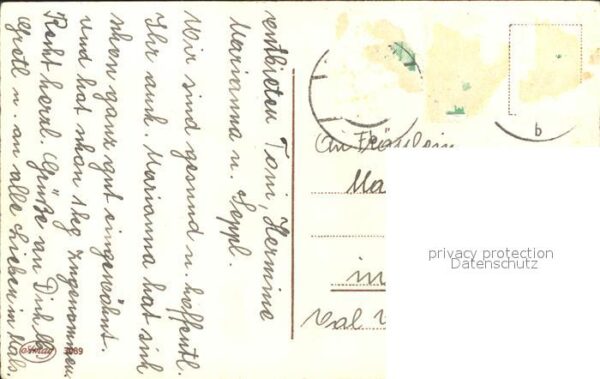 entbieten Toni, Hermine
Marianna u. Seppl.
Wir sind gesund u. hoffentl.
Ihr auch. Marianna hat sich
schon ganz gut eingewöhnt.
und hat schon 1 kg zugenommen.
Recht herzl. Grüße an Dich lb.
Gretl u. an alle Lieben in Vals
An Fräulein
Ma
in
Val
b
3089
privacy protection
Datenschutz